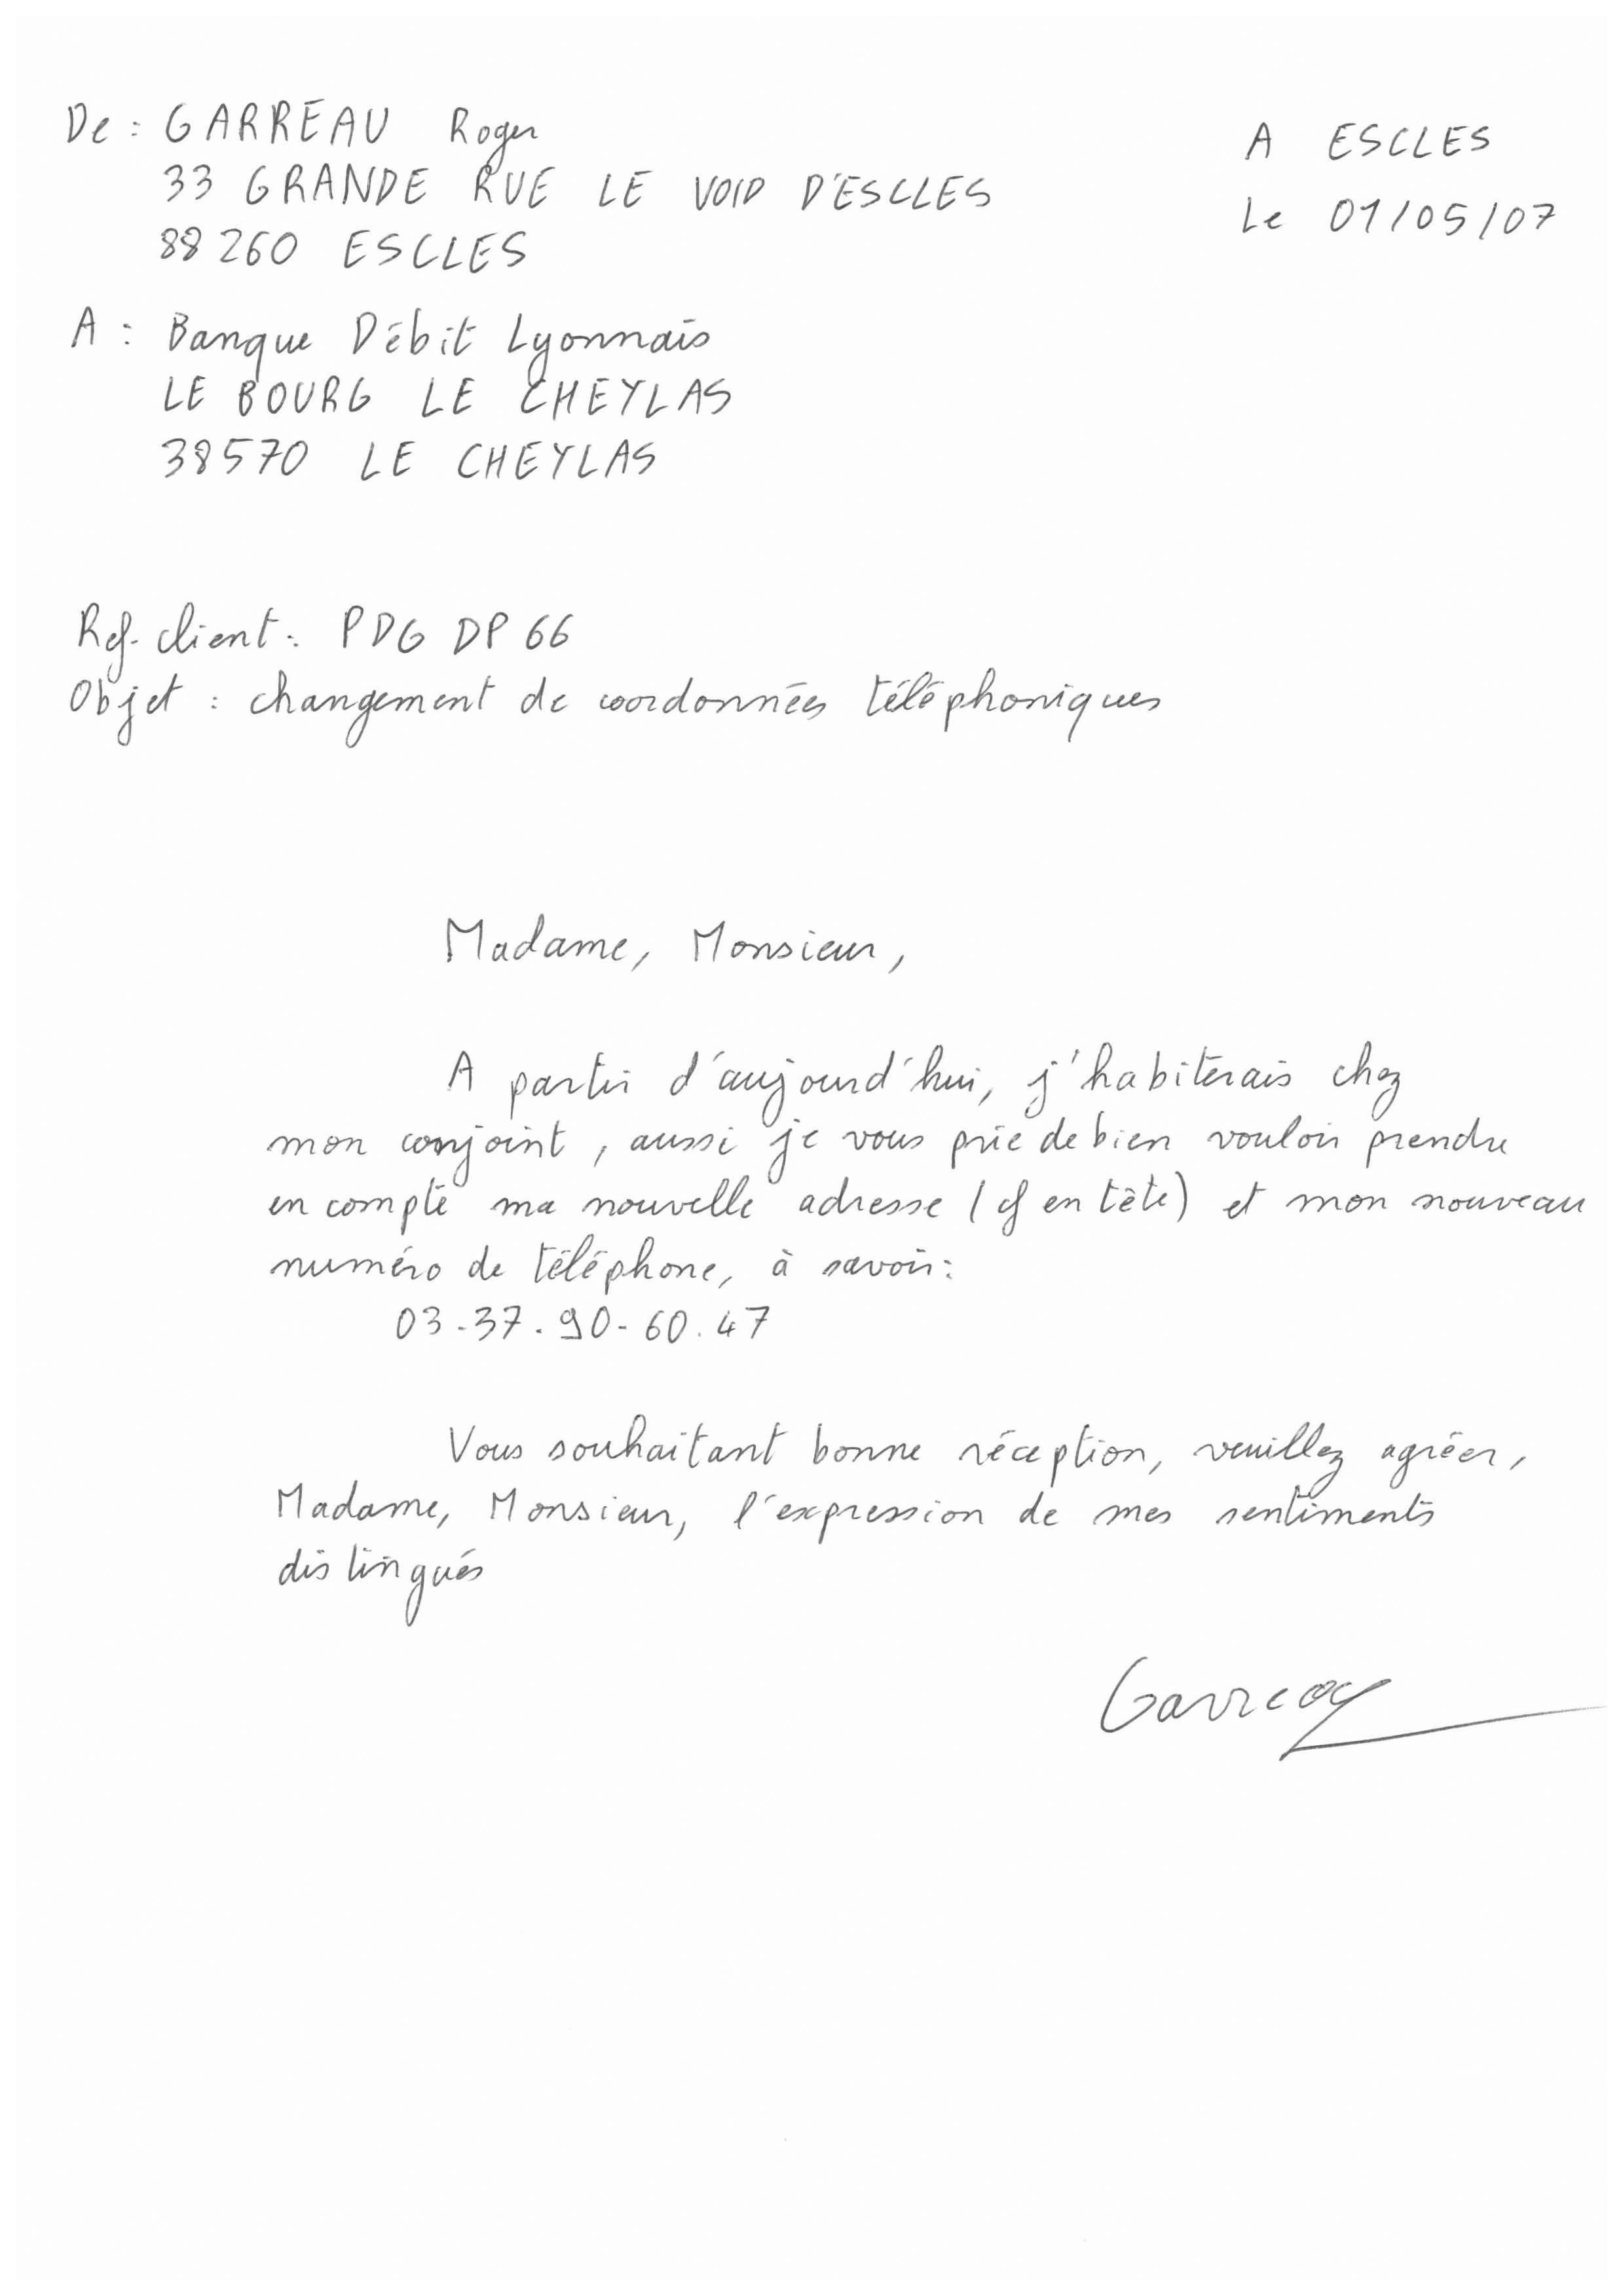 De : GARREAU Roger
33 GRANDE RUE LE VOID D'ESCLES
88260 ESCLES
A ESCLES
Le 01/05/07
A : Banque Débit Lyonnais
LE BOURG LE CHEYLAS
38570 LE CHEYLAS
Ref. client : PDGDP66
Objet : changement de coordonnées téléphoniques
Madame, Monsieur,
A partir d'aujourd'hui, j'habiterais chez
mon conjoint, aussi je vous prie de bien vouloir prendre
en compte ma nouvelle adresse (cf en tête) et mon nouveau
numéro de téléphone, à savoir :
03-37.90-60.47
Vous souhaitant bonne réception, veuillez agréer,
Madame, Monsieur, l'expression de mes sentiments
distingués
Garreau